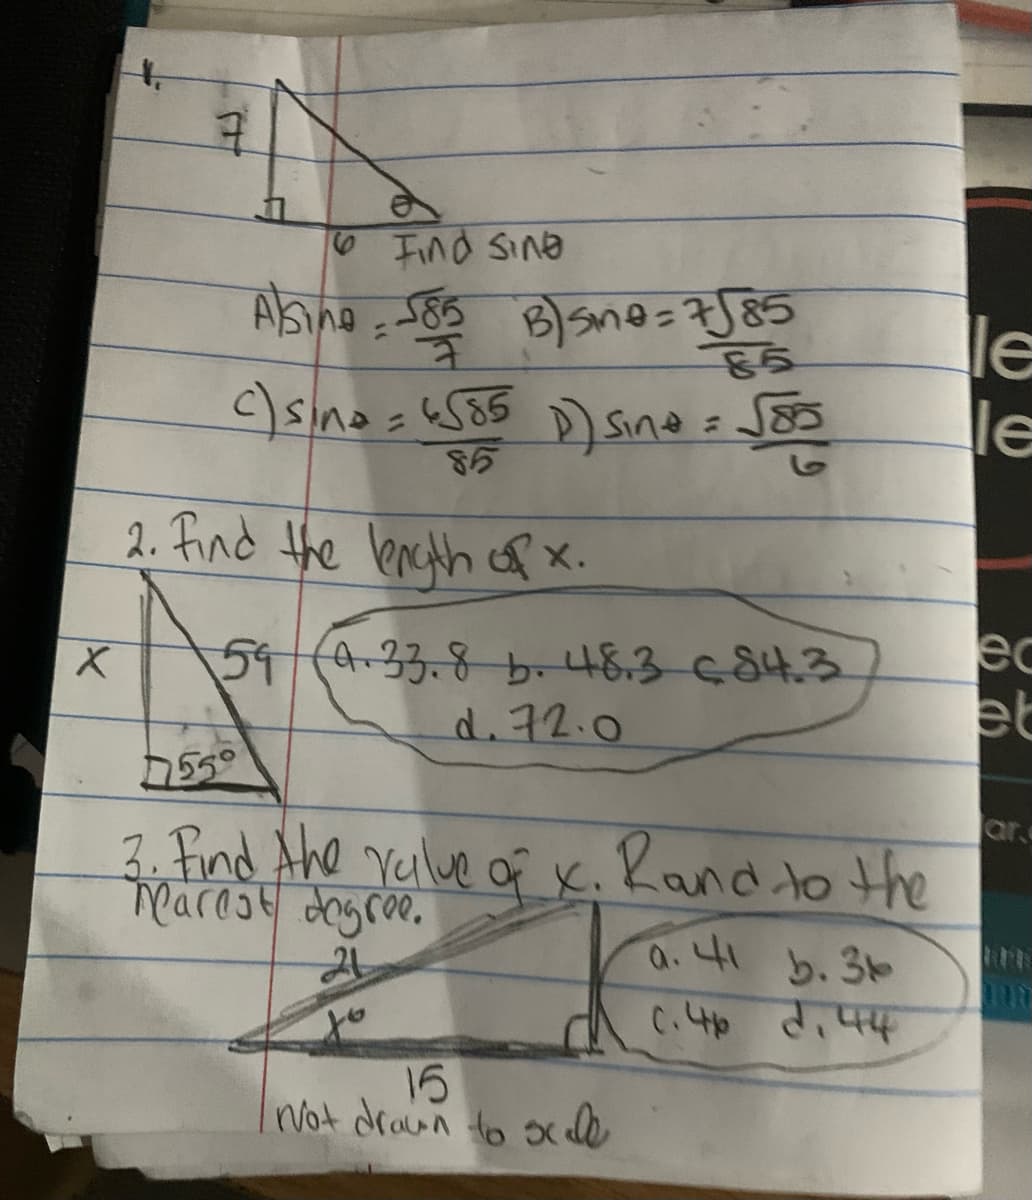 1.
7
θ
6 Find sinθ
A) sinθ = √85/7 B) sinθ = 7√85/85
C) sinθ = 6√85/85 D) sinθ = √85/6
2. Find the length of x.
x 59 a. 33.8 b. 48.3 c 84.3
d. 72.0
55°
3. Find the value of x. Rand to the
nearest degree.
21 a. 41 b. 36
x° c. 46 d. 44
15
Not drawn to scale
le
le
ar.